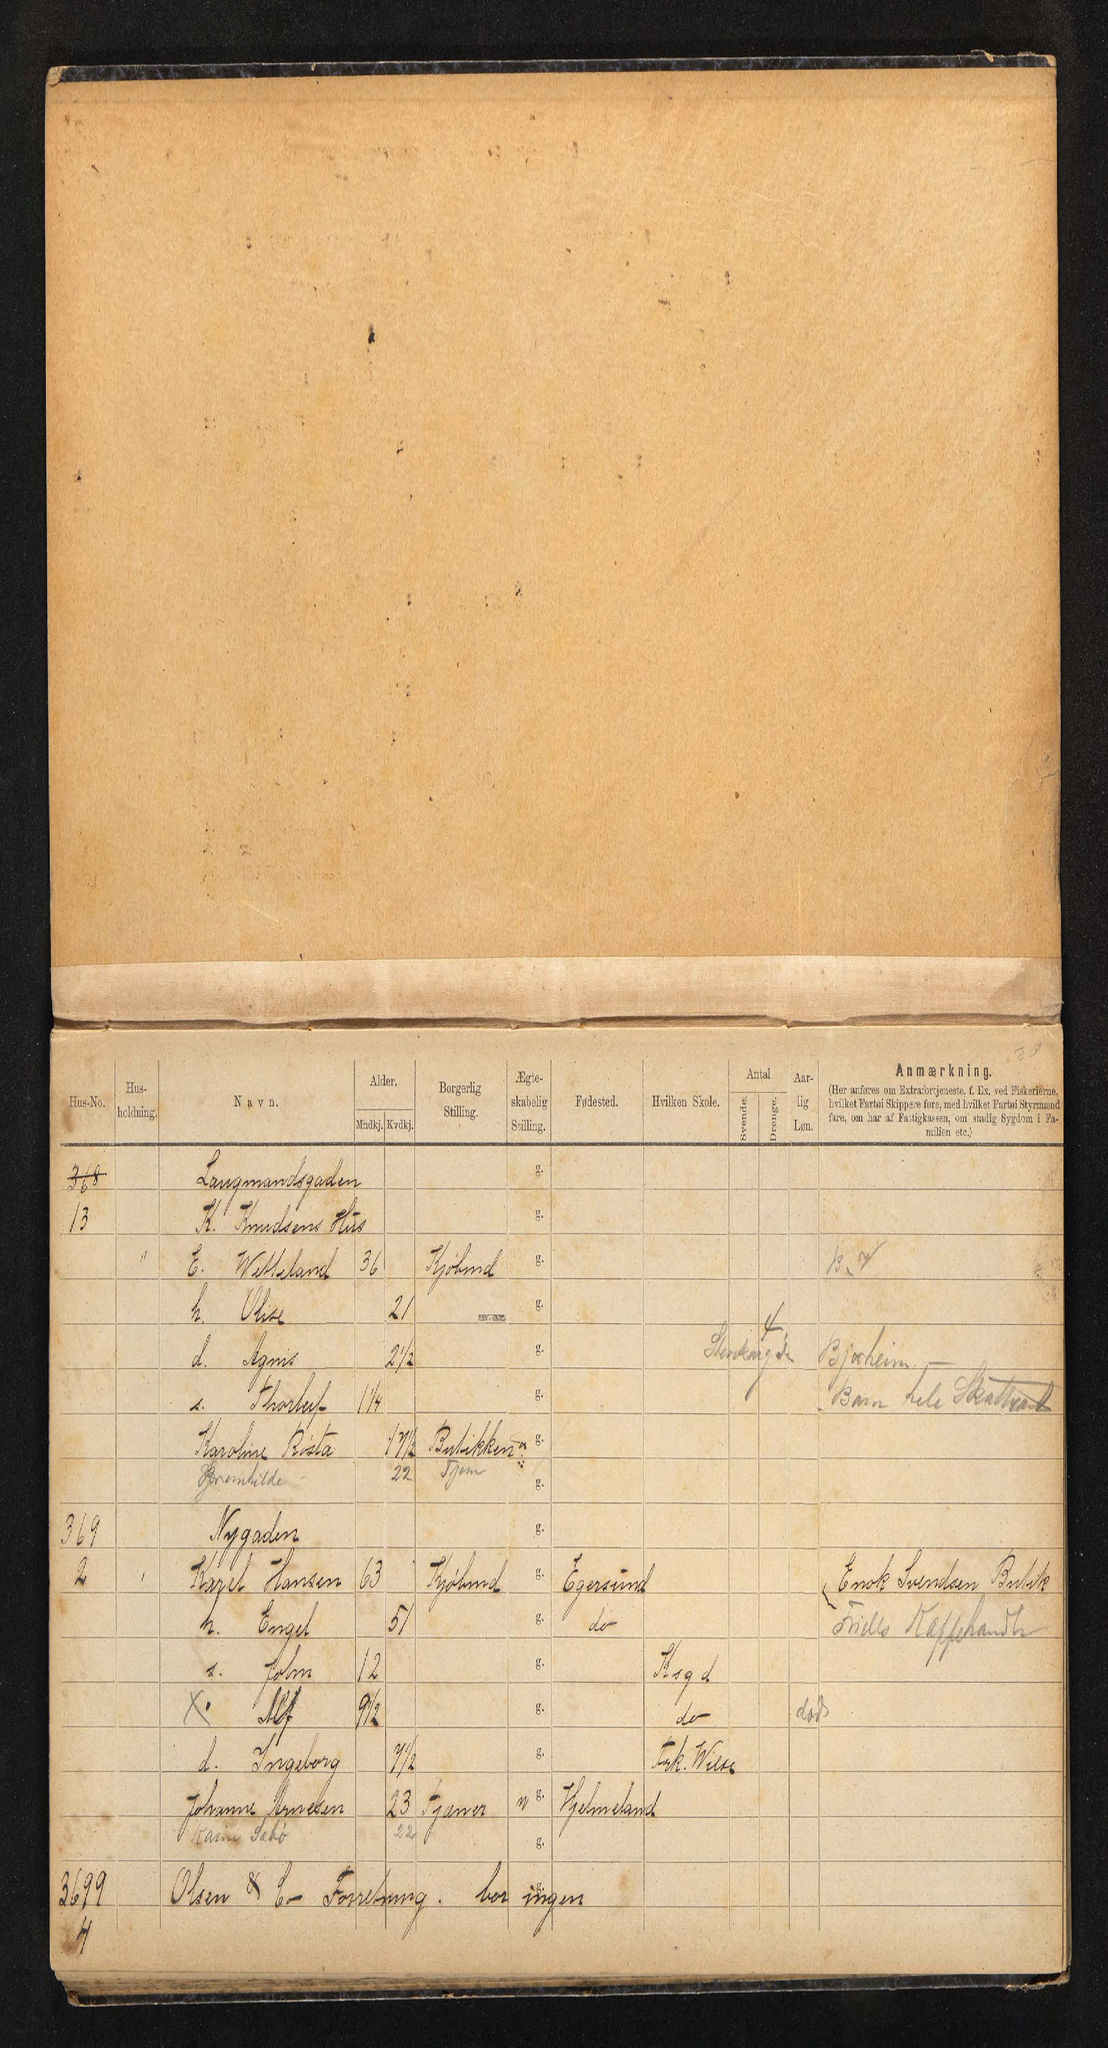 Hus-No. Hus-holdning. Navn. Alder. Mndkj. Kvdkj. Borgerlig Stilling. Ægte-skabelig Stilling. Fødested. Hvilken Skole. Antal Svende. Drenge. Aar-lig Løn. Anmærkning.
(Her anføres om Extrafortjeneste, f. Ex. ved Fiskerierne, hvilket Fartøi Skippere føre, med hvilket Fartøi Styrmænd fare, om har af Fattigkassen, om stadig Sygdom i Fa-milien etc.)
368 Laugmandsgaden g.
13 K. Knudsens Hus g.
" E. Wetteland 36 Kjøbmd g.
h. Olise 21 g.
d. Agnis 2 1/2 g. 4 Bjorheim
s. Thorleif 1 1/4 g. Barn hele
Karoline Rosta 17 1/2 Butikken g.
22 Tjen g.
369 Nygaden g.
2 Karel Hansen 63 Kjøbmd g. Egersund Enok Svendsen Butik
h. Engel 51 g. do Friells Kaffehandl
s. John 12 g. Ksg d
X " Alf 9 1/2 g. do død
d. Ingeborg 7 1/2 g. Frk. Wilse
Johanne Arnesen 23 Tjener g. Hjelmeland
Karin Sabø 22 g.
3699 Olsen & Co Forretning. bor ingen g.
4